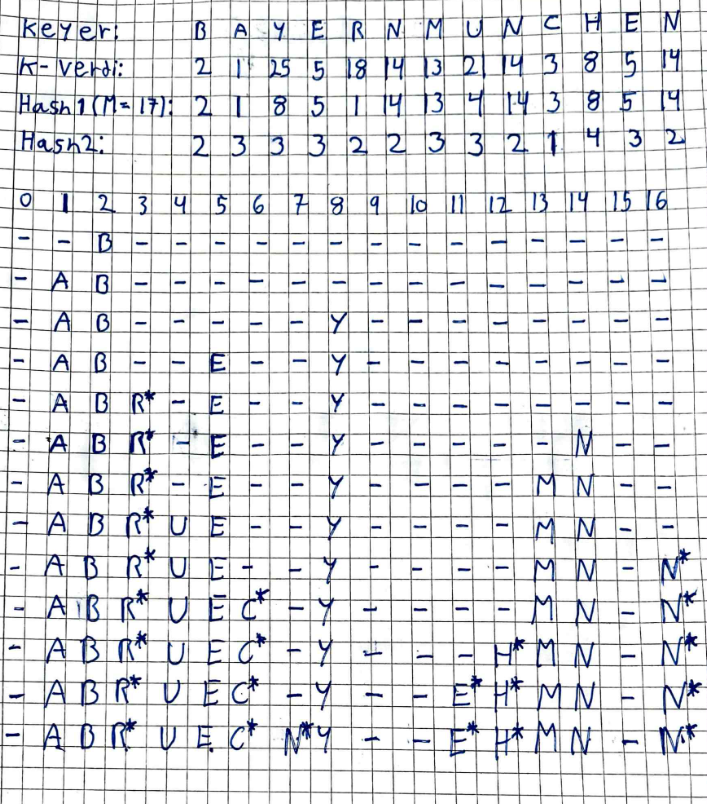 Keyer: B A Y E R N M U N C H E N
K-verdi: 2 1 25 5 18 14 13 21 14 3 8 5 14
Hash1(M=17): 2 1 8 5 1 14 13 4 14 3 8 5 14
Hash2: 2 3 3 3 2 2 3 3 2 1 4 3 2
0 1 2 3 4 5 6 7 8 9 10 11 12 13 14 15 16
- - B - - - - - - - - - - - - - -
- A B - - - - - - - - - - - - - -
- A B - - - - - Y - - - - - - - -
- A B - - E - - Y - - - - - - - -
- A B R* - E - - Y - - - - - - - -
- A B R* - E - - Y - - - - - N - -
- A B R* - E - - Y - - - - M N - -
- A B R* U E - - Y - - - - M N - -
- A B R* U E - - Y - - - - M N - N*
- A B R* U E C* - Y - - - - M N - N*
- A B R* U E C* - Y - - - H* M N - N*
- A B R* U E C* - Y - - E* H* M N - N*
- A B R* U E C* N* Y - - E* H* M N - N*